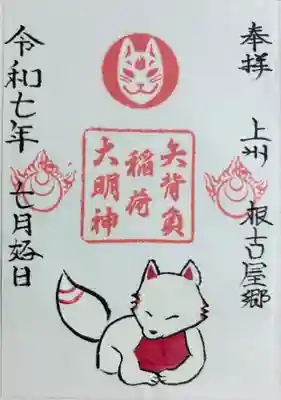 奉拝　上州　根古屋郷
矢背負
稲荷
大明神
令和七年　七月好日